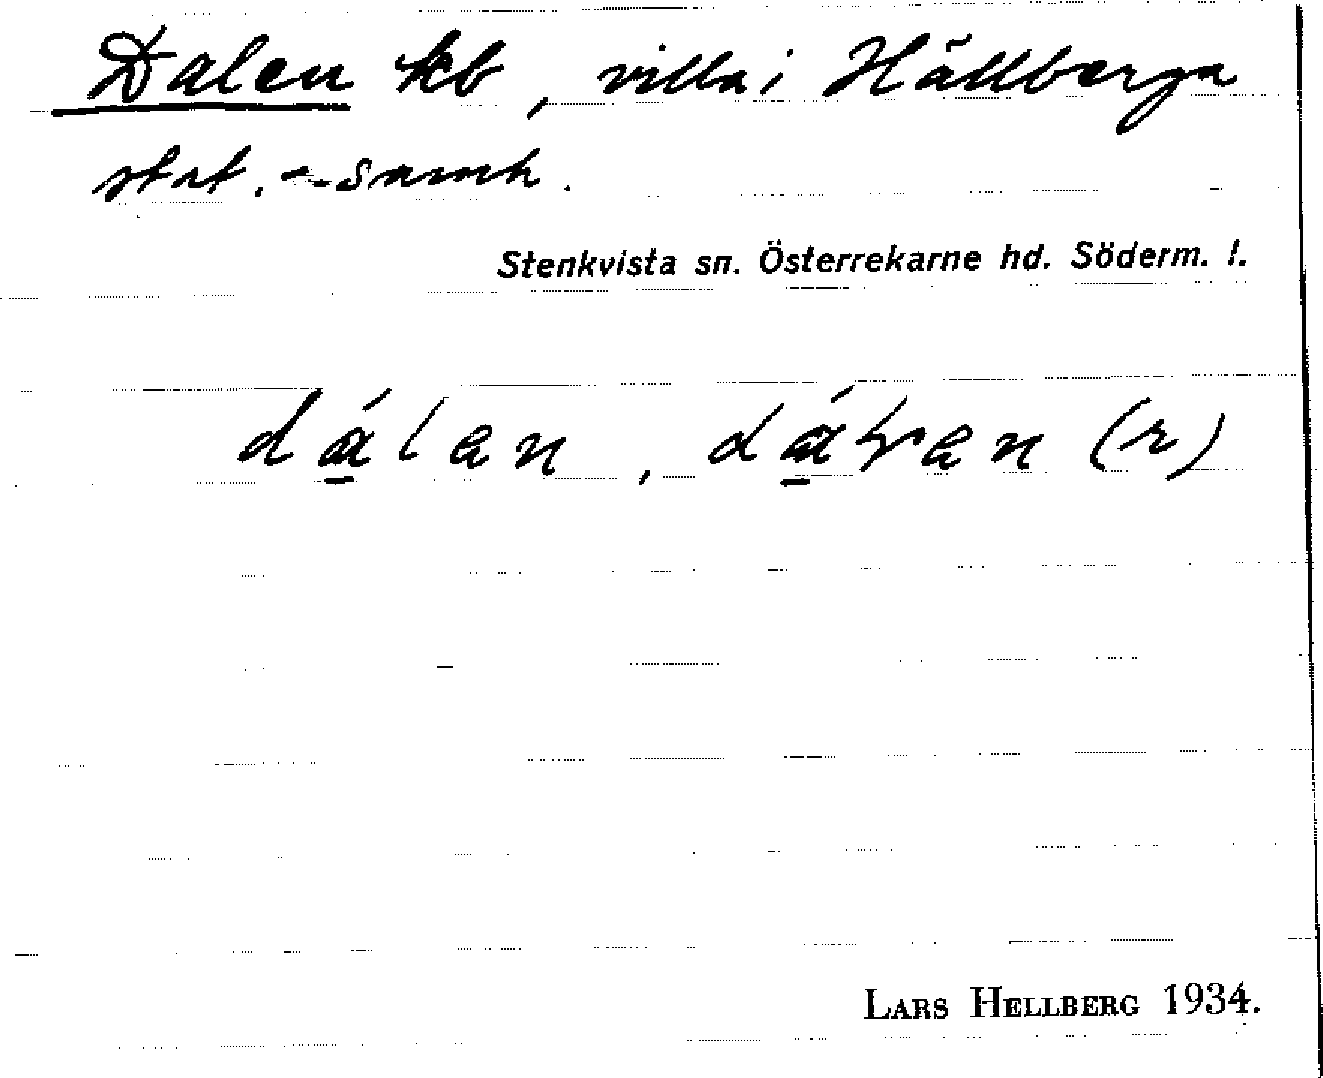 Dalen kb, villa i Hällberga
stat.-samh.
Stenkvista sn. Österrekarne hd. Söderm. l.
dálan, (r)
LARS HELLBERG 1934.